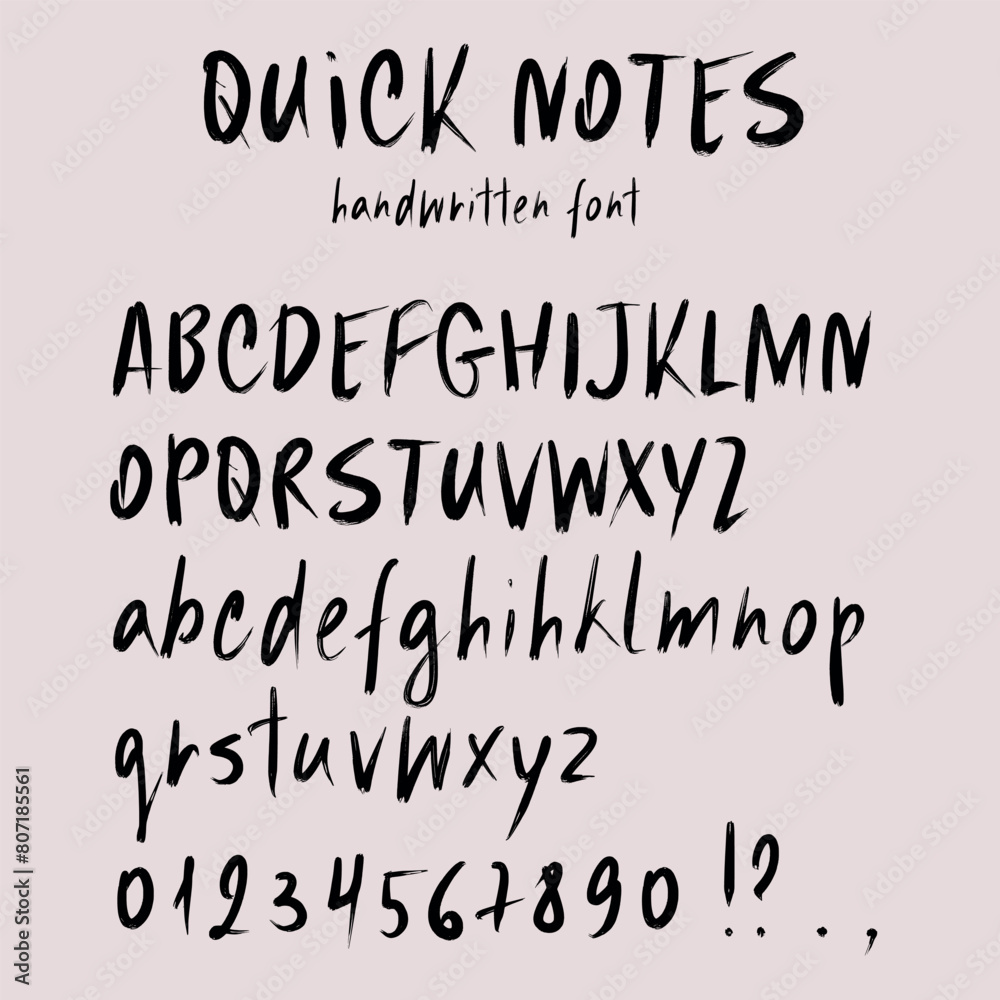 QUiCK NOTES
handwritten font
ABCDEFGHIJKLMN
OPQRSTUVWXYZ
abcdefghihklmnop
qrstuvwxyz
01234567890 !? . ,
Adobe Stock | #807185561